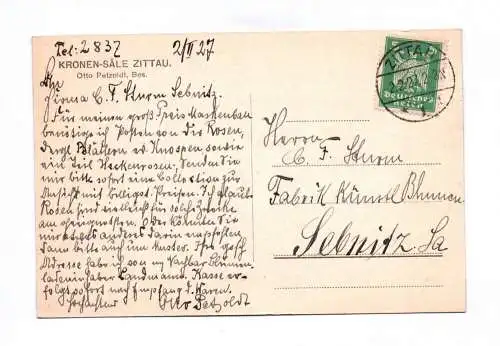 Tel: 2837 2/II 27
KRONEN-SÄLE ZITTAU.
Otto Petzoldt, Bes.
An
Firma C. F. Sturm Sebnitz.
Für meinen groß Preis Maskenball
benötige ich Posten von Dir Rosen,
dergl Blättern u Knospen sowie
ein Teil Heckenrosen, senden Sie
mir bitte sofort eine Collection zur
Ansicht mit billigst. Preisen. Ich glaube
Rosen sind vielleicht für solche Zwecke
am geeignetsten. Oder könnten Sie
mir etwas anderes darin empfehlen
dann bitte auch um Muster. Ihre gesch
Adresse habe ich von m Nachbar Blumen
ladeninhaber Landmann. Kasse er-
folgt sofort nach Empfang d. Waren.
Hochachtend Otto Petzoldt
ZITTAU
Deutsches
Reich
Herrn
C. F. Sturm
Fabrik Künstl Blumen
Sebnitz Sa